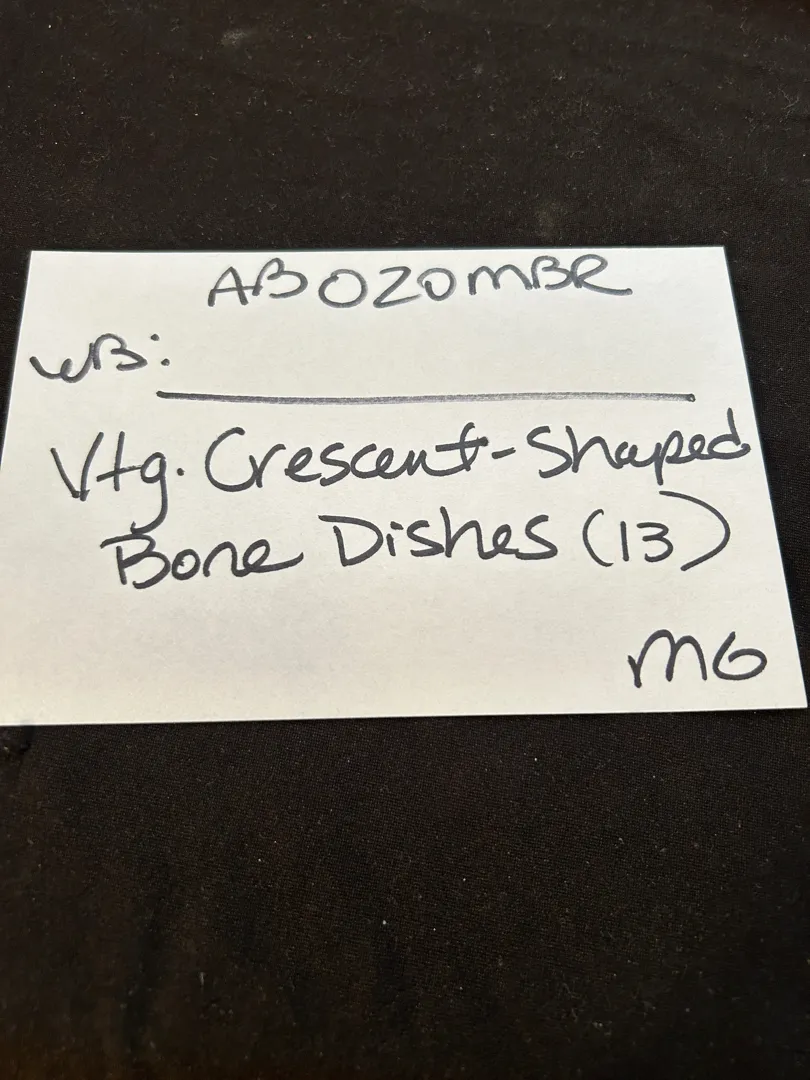 ABOZOMBR
WB:
Vtg. Crescent-Shaped
Bone Dishes (13)
MG